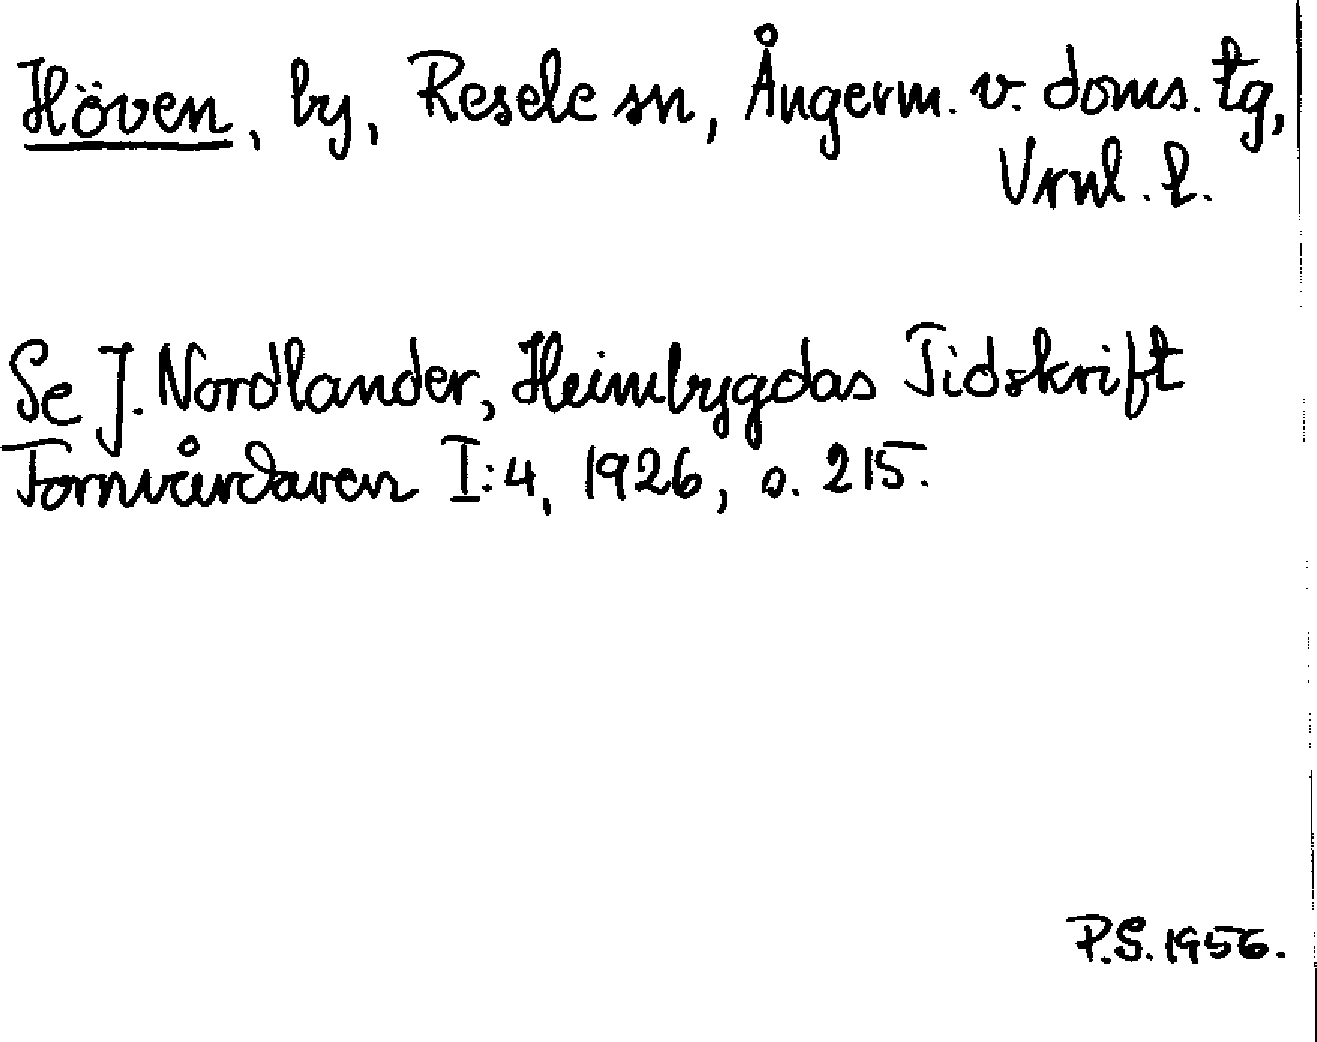 Höven, by, Resele sn, Ångerm. v. doms. tg,
Vrnl. l.
Se J. Nordlander, Heimbygdas Tidskrift
Fornvårdaren I:4, 1926, s. 215.
P.S. 1956.